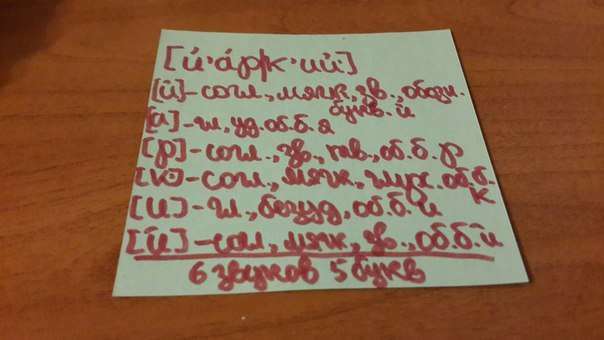 [й'áр/к'ий']
[й]-согл., мягк., зв., обозн.
букв. й
[а]-гл, уд. об. б. а
[р]-согл., зв., тв., об. б. р
[к']-согл., мягк., глух. об. б.
к
[и]-гл., безуд, об. б. и
[й]-согл, мягк, зв., об. б. й
6 звуков 5 букв